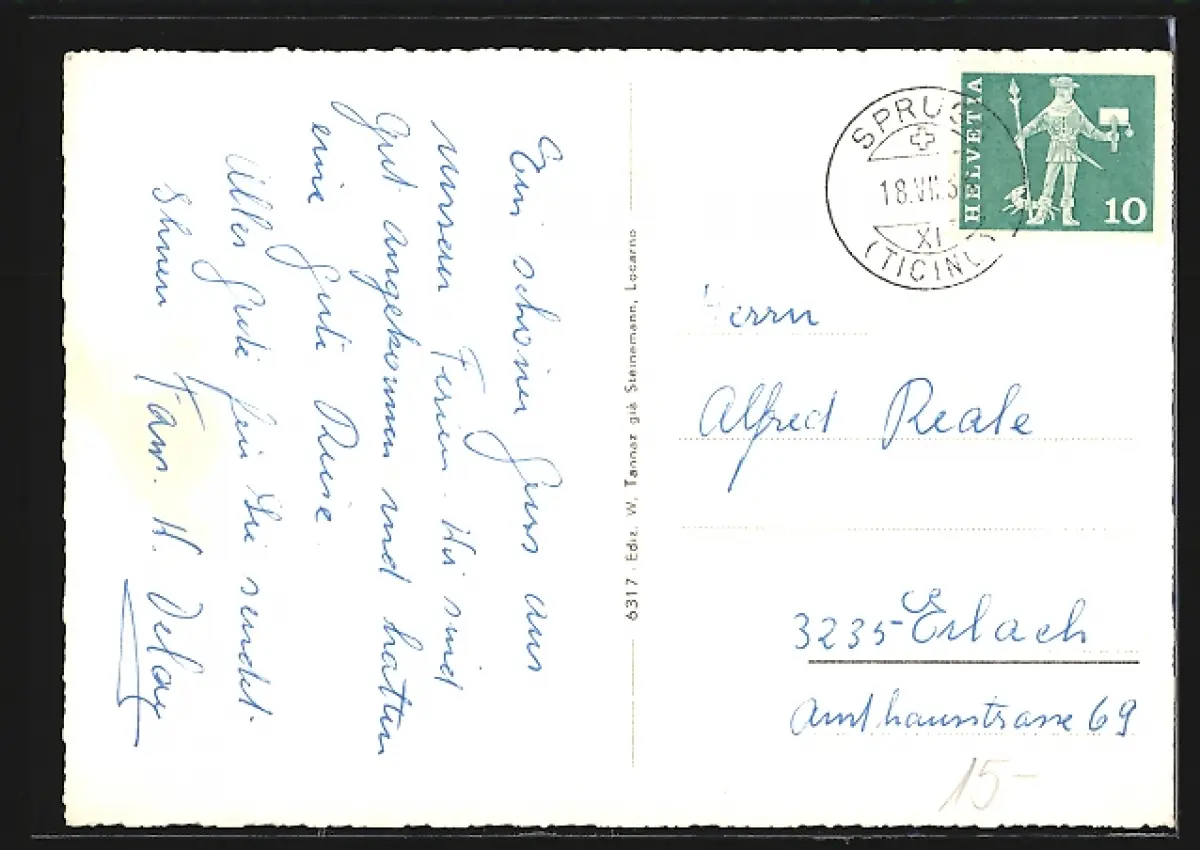 Ein schöner Gruss aus
unseren Ferien. Wir sind
Gut angekommen und hatten
eine gute Reise.
Alles Gute für Sie sendet.
Ihnen Fam. H. Delay
6317 - Ediz. W. Tannaz già Steinemann, Locarno
SPRUG
18.VII.
XI
(TICINO)
HELVETIA
10
Herrn
Alfred Reale
3235 Erlach
Amthausstrasse 69
15-